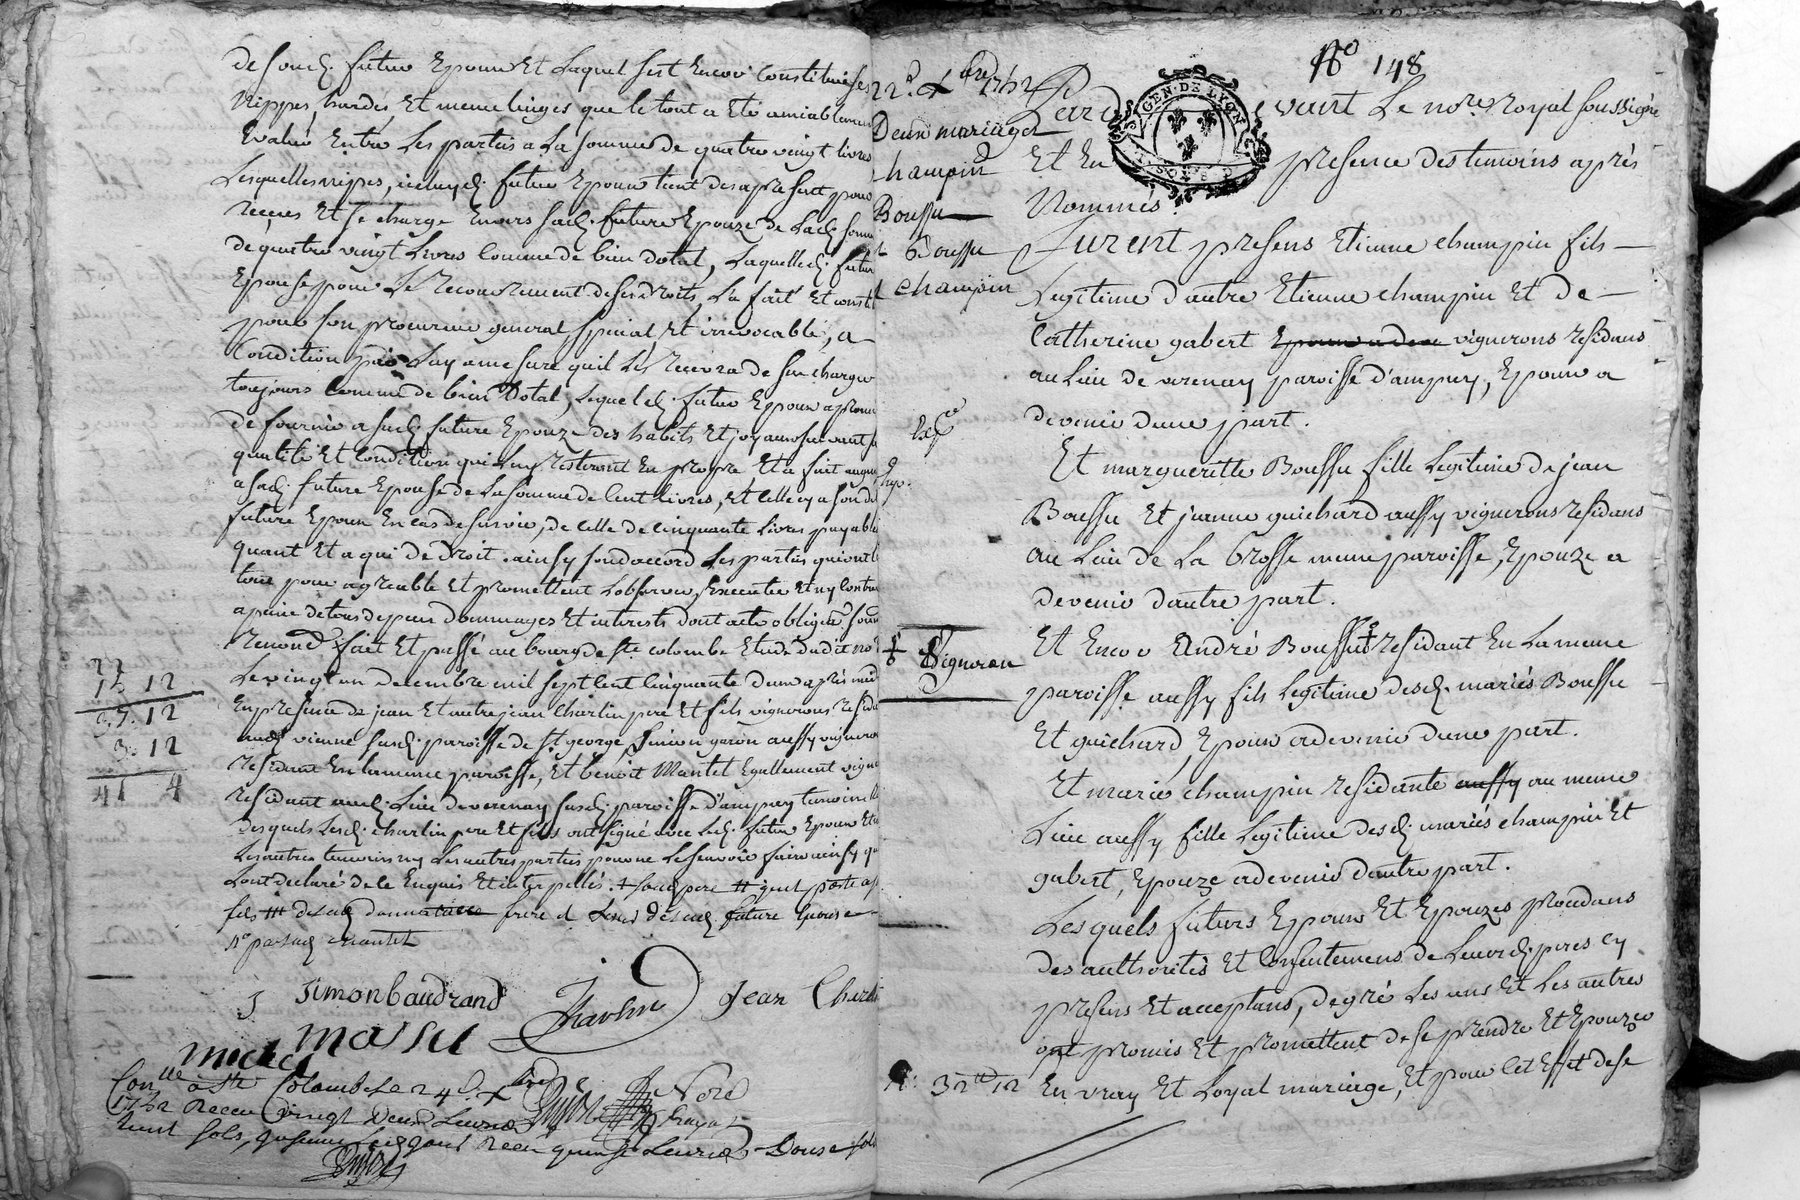 de soud. futur Epoux Et Laquel s'est Encor Constitué ses
Nippes, hardes, Et menu linges que le tout a Eté amiablement
Evalué Entre Les parties a La somme de quatre vingt livres
Lesquelles nipes, iceluy d. futur Epoux tient des apresent pour
recües Et se charge Envers sad. future Epouze de Lad. somme
de quatre vingt Livres Comme de bien dotal, Laquelle d. future
Epouse pour Le recouvrement de ses droits, L'a fait Et constitué
pour son procureur general special Et irrevocable, a
Condition par Luy a mesure quil Les recevra de s'en charger
toujours Comme de bien Dotal, Lequel d. futur Epoux a promis
de fournir a sad. future Epouze des habits Et joyaux suivant sa
qualité Et Condition qui Luy resteront En propre Et a fait augment
a sad. future Epouse de La somme de Cent livres, et celle cy a son d.
futur Epoux En cas de survie, de celle de cinquante Livres payable
quant Et a qui de droit. ainsy sont d'accord Les parties qui ont le
tout pour agreable Et promettent L'observer, Executer Et ny contrev
a peine de tous depens Dommages Et interests dont acte oblign. soum
Renond. fait Et passé au bourg de Ste colombe Etude dudit no.re
Le vingt un decembre mil sept Cent Cinquante deux après midi
En presence de jean Et autre jean Charlin pere Et fils vignerons residans
aud. vienne susd. paroisse de St george, Simon garon aussy vigneron
residant En la meme paroisse, Et benoit Mantel Egallement vigneron
residant aud. Lieu de verenay susd. paroisse d'ampuy temoins
desquels Lesd. charlin pere Et fils ont signé avec Led. futur Epoux Et
Les autres temoins ny Les autres parties pour ne Le scavoir faire ainsy qu
L'ont declaré de ce Enquis Et interpellés.
22
15 12
37. 12
3. 12
41 4
Simon baudrand
Charlin
Jean Charlin
Con.lle a Ste Colombe Le 24 d. Xbre
1752 Receu vingt Deux Livres
huit sols,
22.e Xbre 1752
Deux mariages
champin
Boussu
Et Boussu
Et champin
Exp.o
Exp.
Vigneron
N.o 148
GEN. DE LYON
Pardevant Le no.re Royal soussigné
Et En presence des temoins après
Nommés.
Furent presens Etienne champin fils
Legitime d'autre Etienne champin Et de
Catherine gabert vignerons residans
au Lieu de verenay paroisse d'ampuy, Epoux a
devenir d'une part.
Et marguerite Boussu fille Legitime de jean
Boussu Et jeanne guichard aussy vignerons residans
au Lieu de La brosse meme paroisse, Epouze a
devenir d'autre part.
Et Encor André Boussu residant En La meme
paroisse aussy fils Legitime desd. mariés Boussu
Et guichard, Epoux a devenir d'une part.
Et marie champin residante aussy au meme
Lieu aussy fille Legitime desd. mariés champin Et
gabert, Epouze a devenir d'autre part.
Lesquels futurs Epoux Et Epouzes procedans
des authorités Et Consentemens de Leursd. peres cy
presens Et acceptans, de gré Les uns Et Les autres
ont promis Et promettent de se prendre Et Epouzer
En vray Et Loyal mariage, Et pour Cet Effet de se